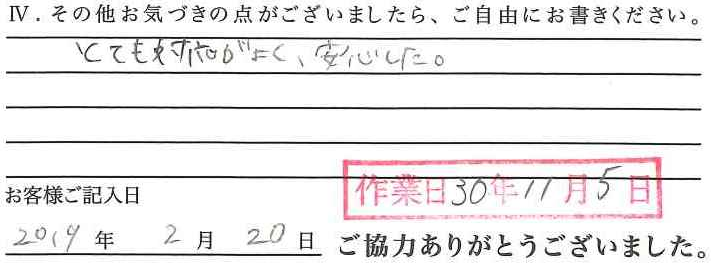 Ⅳ．その他お気づきの点がございましたら、ご自由にお書きください。
とても対応がよく、安心した。
作業日30年11月5日
お客様ご記入日
2019年 2月 20日 ご協力ありがとうございました。